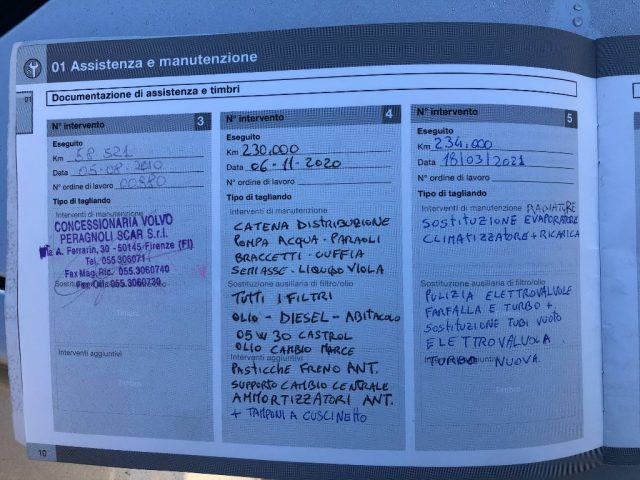 01 Assistenza e manutenzione
01
Documentazione di assistenza e timbri
N° intervento 3
Eseguito
Km 58 521
Data 05-08-2010
N° ordine di lavoro 00880
Tipo di tagliando
Interventi di manutenzione
CONCESSIONARIA VOLVO
PERAGNOLI SCAR S.r.l.
A. Ferrarin, 30 - 50145/Firenze (FI)
Tel. 055.306071
Fax Mag. Ric. 055.3060740
Fax Off. 055.3060730
Sostituzione ausiliaria di filtro/olio
Timbro
Interventi aggiuntivi
N° intervento 4
Eseguito
Km 230.000
Data 06-11-2020
N° ordine di lavoro
Tipo di tagliando
Interventi di manutenzione
CATENA DISTRIBUZIONE
POMPA ACQUA - PARAOLI
BRACCETTI - CUFFIA
SEMIASSE - LIQUIDO VIOLA
Sostituzione ausiliaria di filtro/olio
TUTTI I FILTRI
OLIO - DIESEL - ABITACOLO
05W30 CASTROL
OLIO CAMBIO MARCE
Interventi aggiuntivi
PASTICCHE FRENO ANT.
SUPPORTO CAMBIO CENTRALE
AMMORTIZZATORI ANT.
+ TAMPONI A CUSCINETTO
N° intervento 5
Eseguito
Km 234.000
Data 18/03/2021
N° ordine di lavoro
Tipo di tagliando
Interventi di manutenzione RADIATORE
SOSTITUZIONE EVAPORATORE
CLIMATIZZATORE + RICARICA
Sostituzione ausiliaria di filtro/olio
PULIZIA ELETTROVALVOLE
FARFALLA E TURBO +
SOSTITUZIONE TUBI VUOTO
ELETTROVALVOLA
Interventi aggiuntivi
TURBO NUOVA
Timbro
10